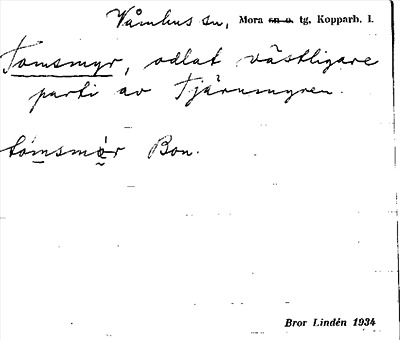 Våmhus sn, Mora sn o. tg, Kopparb. l.
Tomsmyr, odlat västligare
parti av Tjärnmyren.
Bon.
Bror Lindén 1934